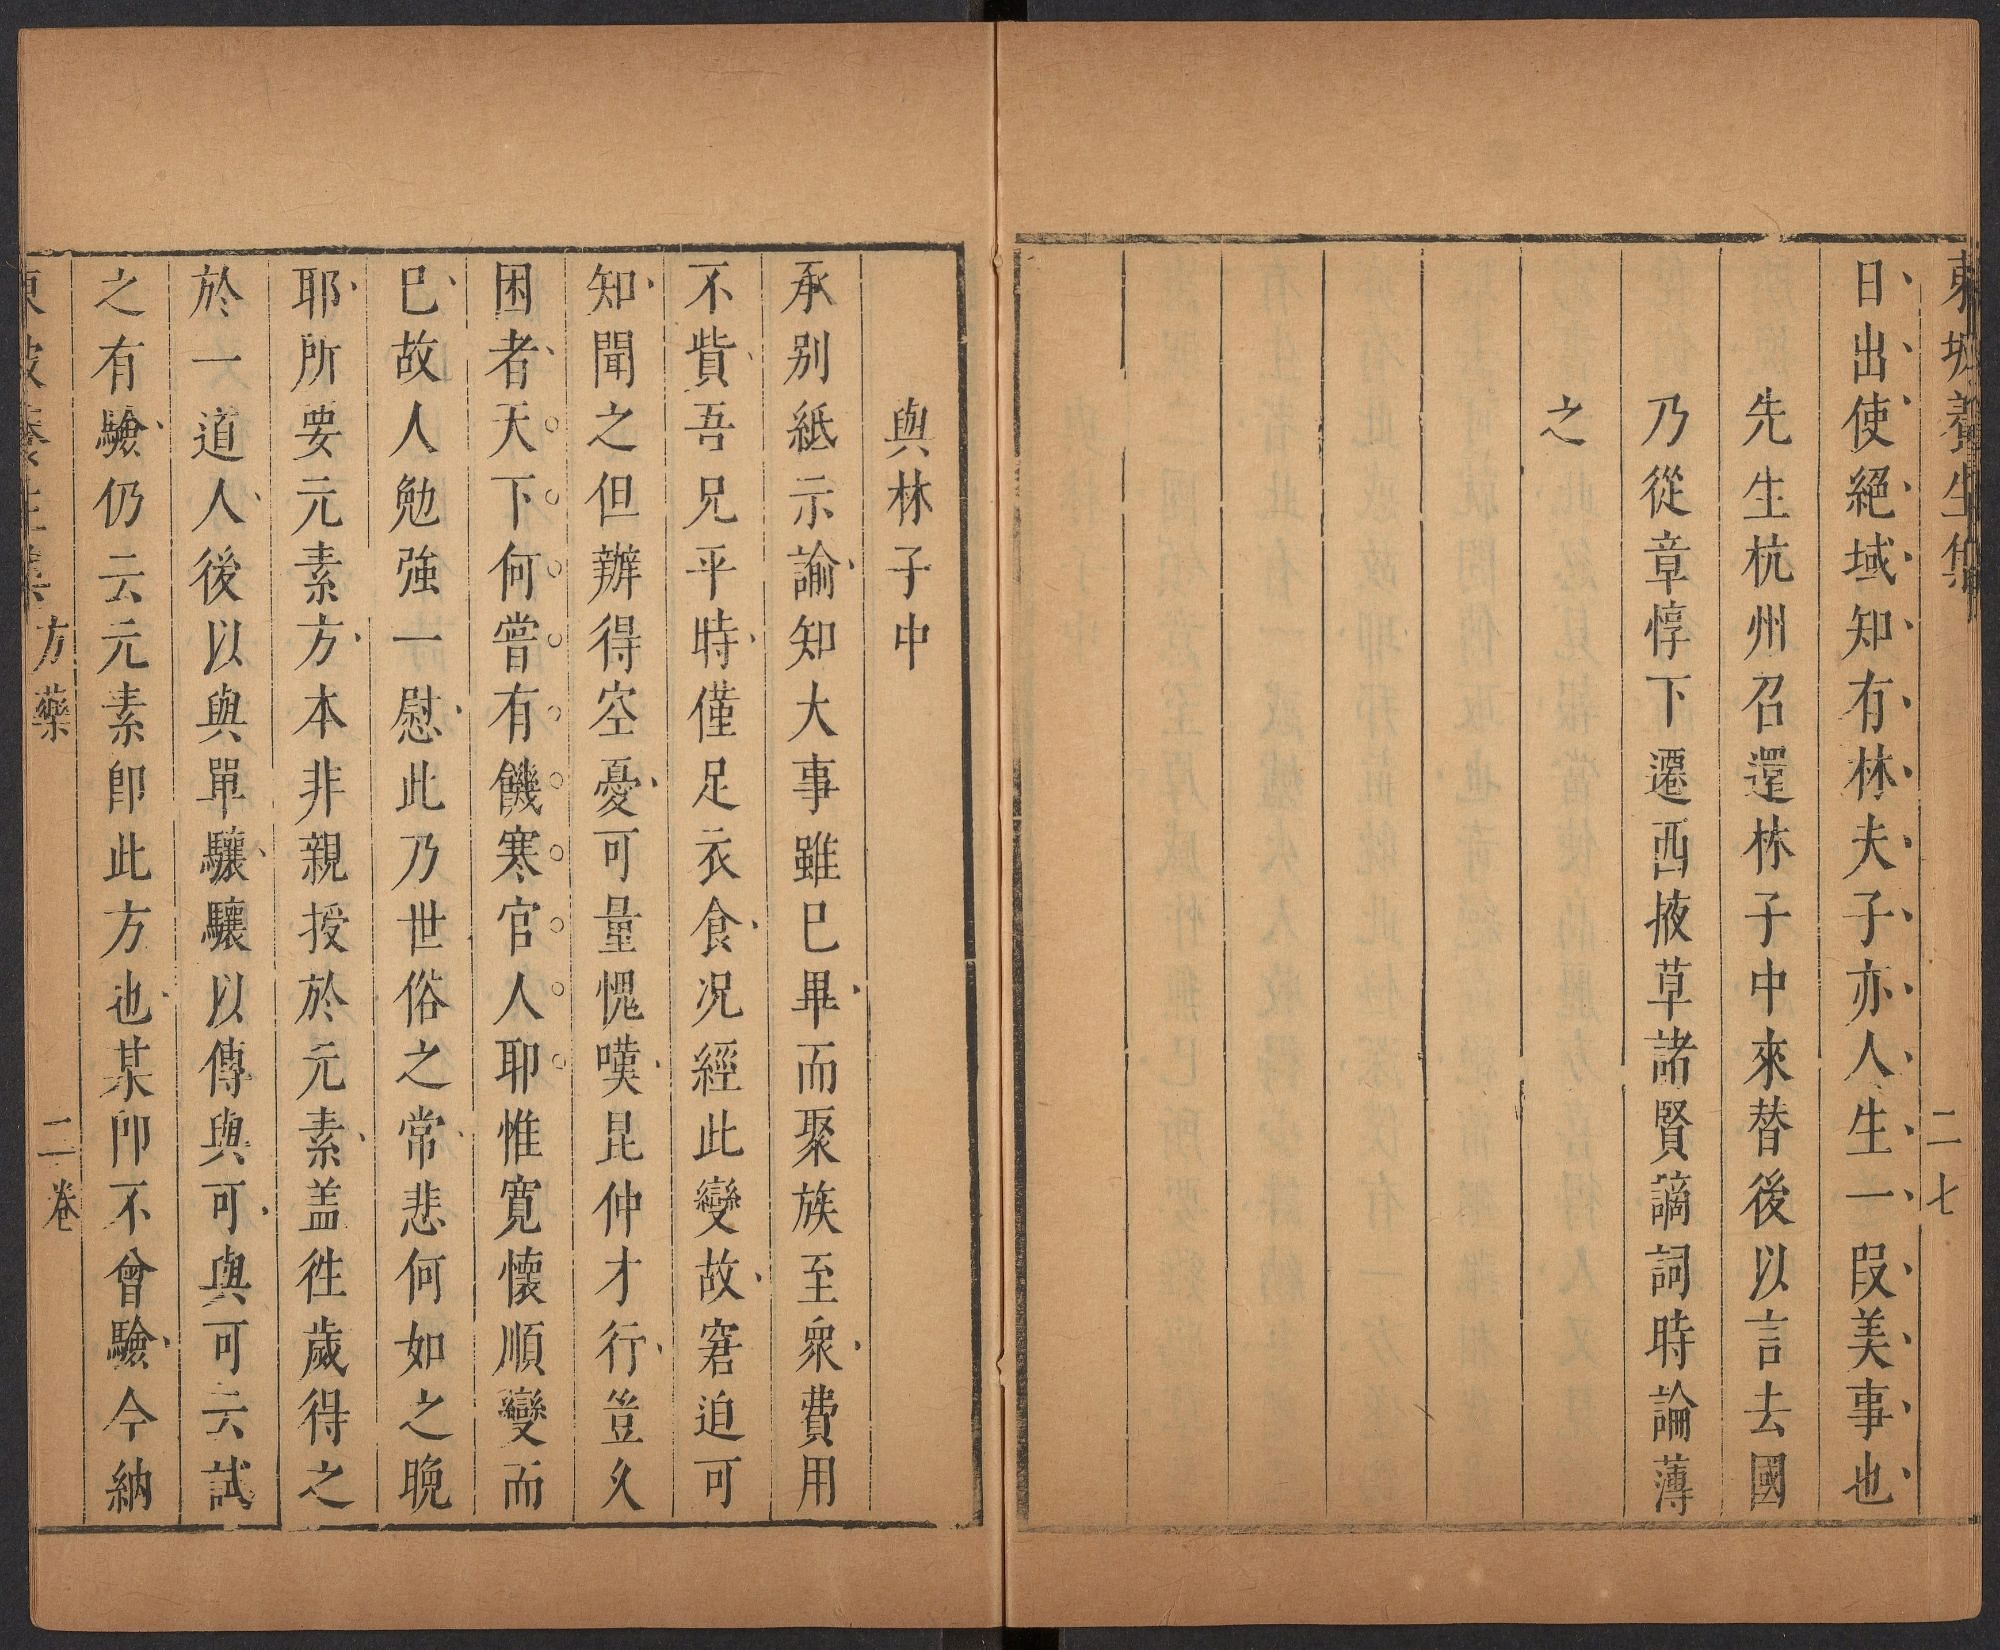 東坡養生集
二七
日出使絕域知有林夫子亦人生一段美事也
先生杭州召還林子中來替後以言去國
乃從章惇下遷西掖草諸賢謫詞時論薄
之
與林子中
承別紙示諭知大事雖巳畢而聚族至衆費用
不貲吾兄平時僅足衣食况經此變故窘迫可
知聞之但辦得空憂可量愧嘆昆仲才行豈久
困者天下何嘗有饑寒官人耶惟寛懷順變而
巳故人勉強一慰此乃世俗之常悲何如之晚
耶所要元素方本非親授於元素盖徃歲得之
於一道人後以與單驤驤以傳與可與可云試
之有驗仍云元素卽此方也某卽不曾驗今納
東坡養生集
方藥
二卷